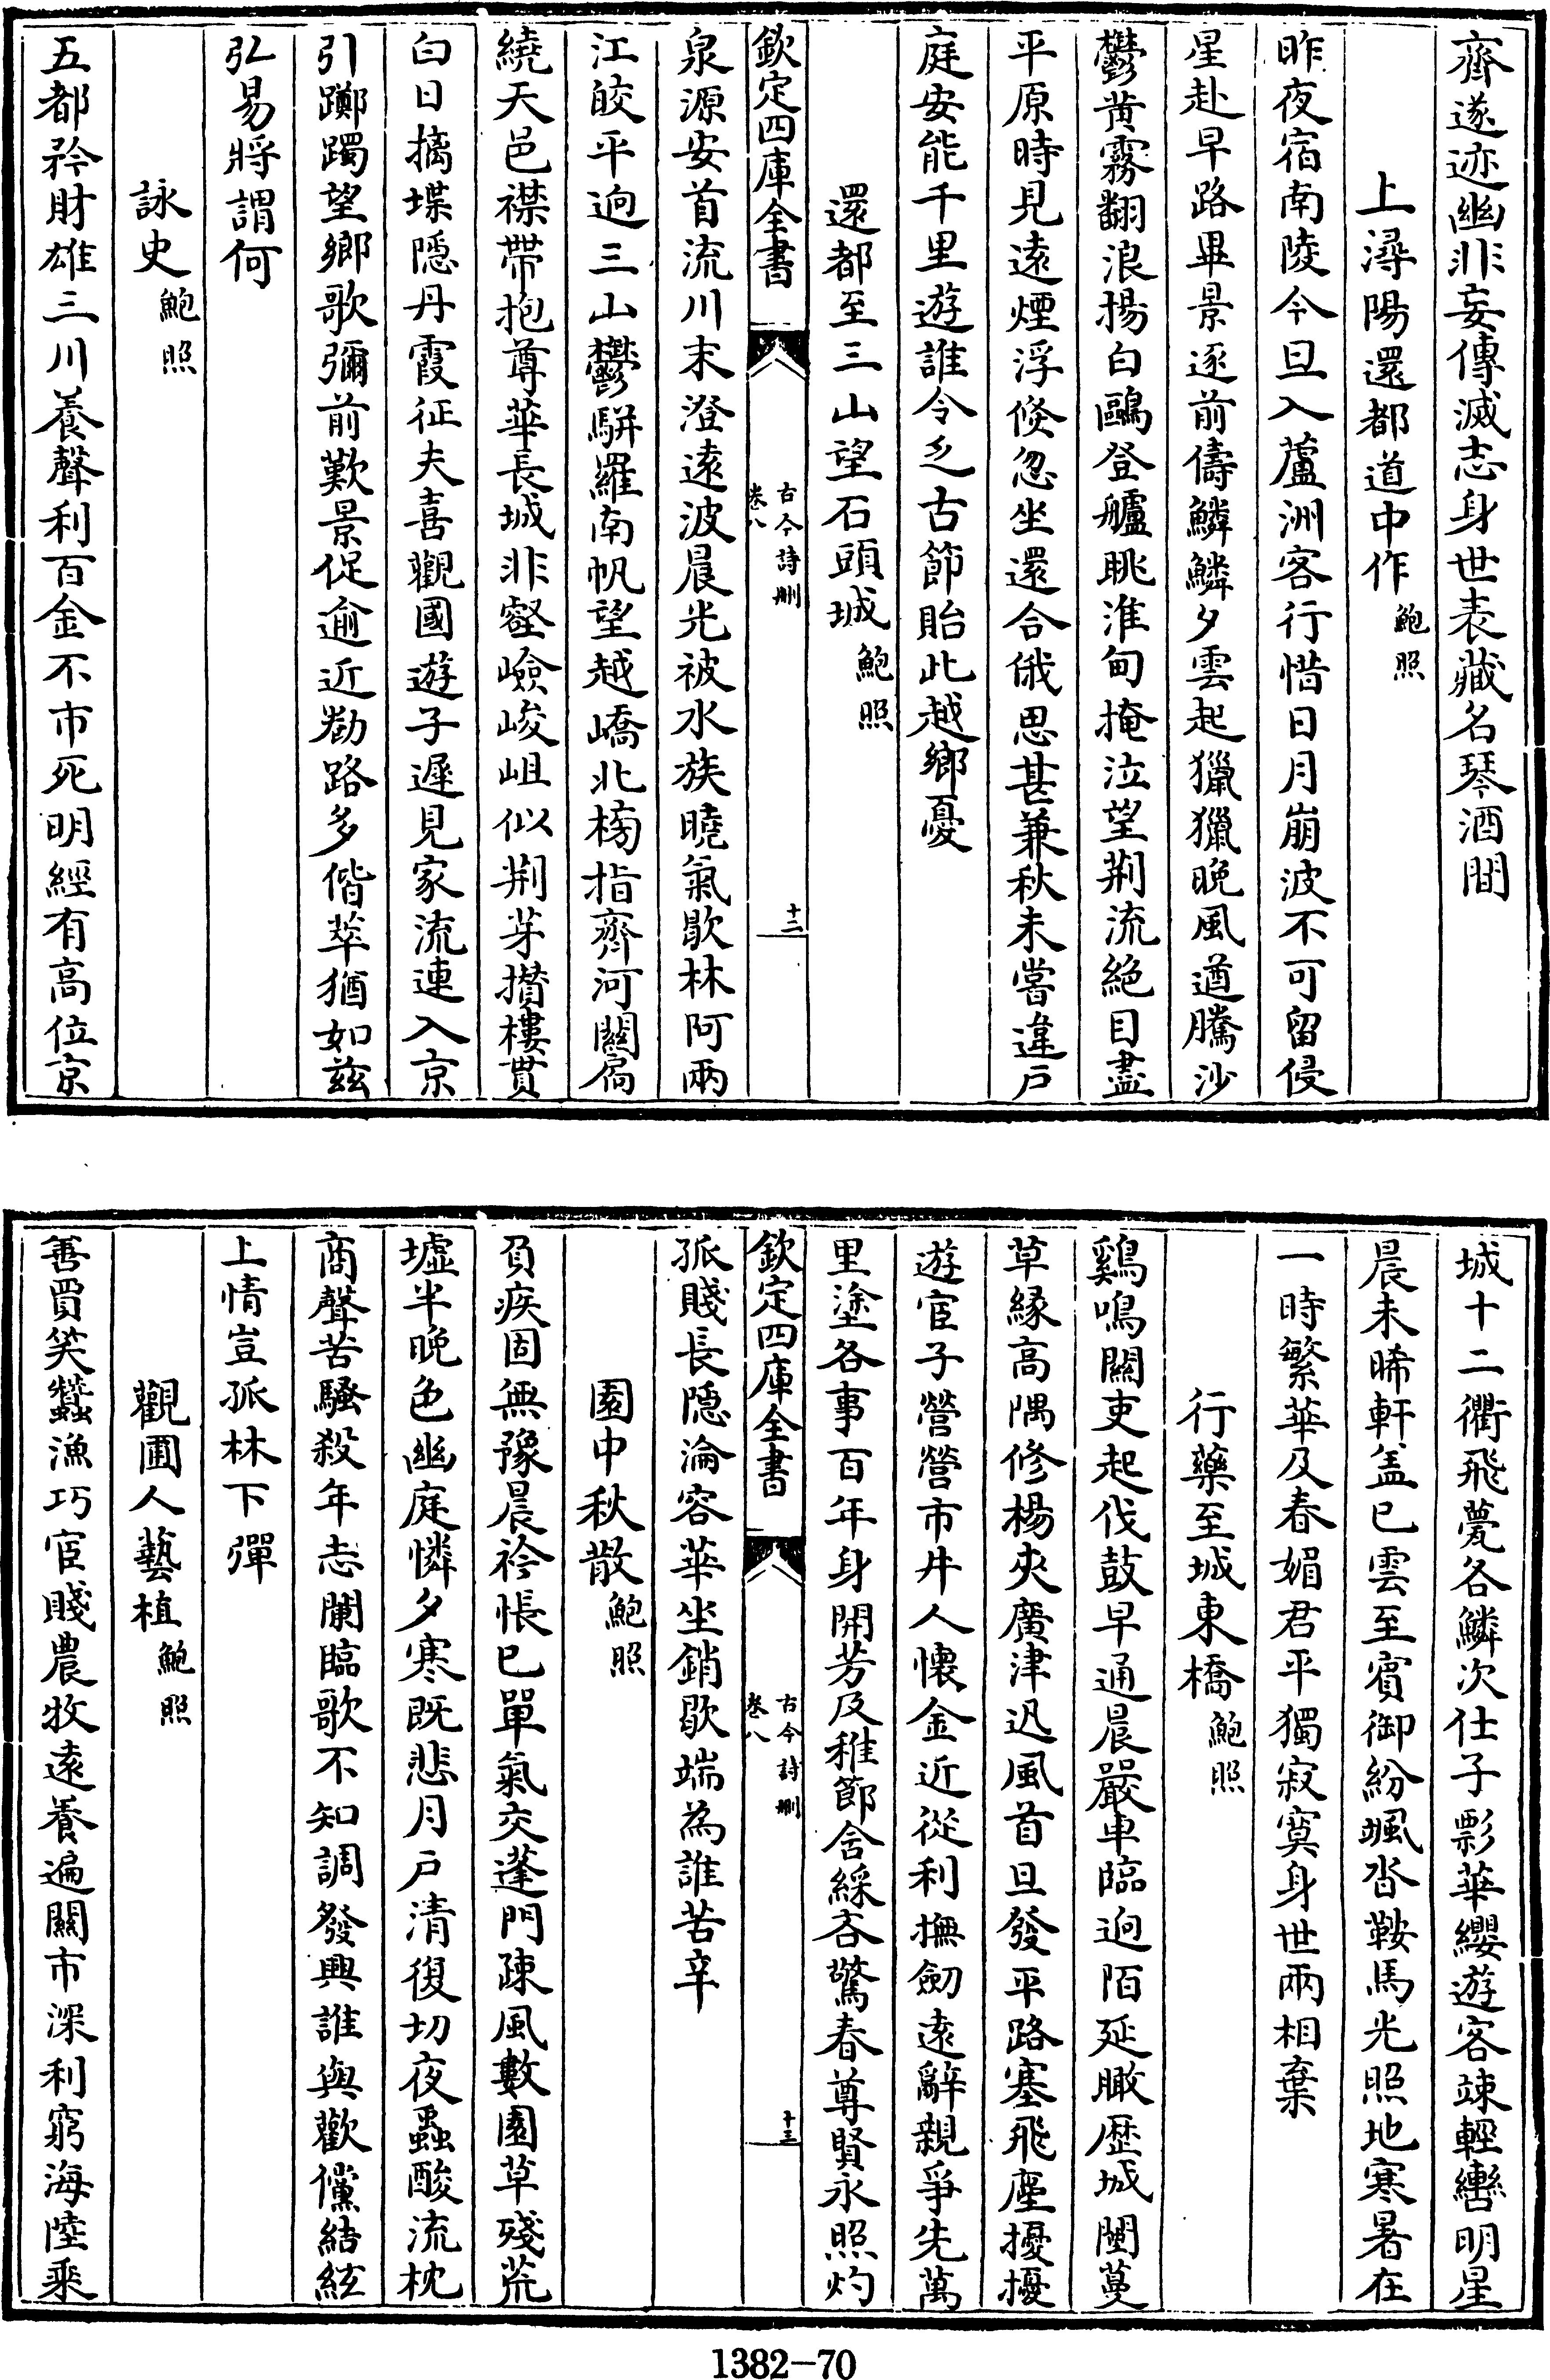 齊遂迹幽非妄傳滅志身世表藏名琴酒間
上潯陽還都道中作 鮑照
昨夜宿南陵今旦入蘆洲客行惜日月崩波不可留侵
星赴早路畢景逐前儔鱗鱗夕雲起獵獵晚風遒騰沙
鬱黄霧翻浪揚白鷗登艫眺淮甸掩泣望荆流絶目盡
平原時見遠煙浮倐忽坐還合俄思甚兼秋未嘗違戸
庭安能千里遊誰令乏古節貽此越鄉憂
還都至三山望石頭城 鮑照
欽定四庫全書 古今詩刪 卷八 十二
泉源安首流川末澄遠波晨光被水族曉氣歇林阿兩
江皎平逈三山鬱駢羅南帆望越嶠北榜指齊河關扄
繞天邑襟帶抱尊華長城非壑嶮峻岨似荆芽攢樓貫
白日摛堞隱丹霞征夫喜觀國遊子遲見家流連入京
引躑躅望鄉歌彌前歎景促逾近勌路多偕萃猶如兹
弘易將謂何
詠史 鮑照
五都矜財雄三川養聲利百金不市死明經有高位京
城十二衢飛甍各鱗次仕子彯華纓遊客竦輕轡明星
晨未晞軒盖已雲至賓御紛颯沓鞍馬光照地寒暑在
一時繁華及春媚君平獨寂寞身世兩相棄
行藥至城東橋 鮑照
鷄鳴關吏起伐鼓早通晨嚴車臨逈陌延瞰歴城闉蔓
草緣高隅修楊夾廣津迅風首旦發平路塞飛塵擾擾
遊宦子營營市井人懷金近從利撫劒逺辭親爭先萬
里塗各事百年身開芳及稚節含綵吝驚春尊賢永照灼
欽定四庫全書 古今詩刪 卷八 十三
孤賤長隠淪容華坐銷歇端為誰苦辛
園中秋散 鮑照
負疾固無豫晨衿悵已單氣交蓬門疎風數園草殘荒
墟半晚色幽庭憐夕寒既悲月戸清復切夜蟲酸流枕
商聲苦騷殺年志闌臨歌不知調發興誰與歡儻結絃
上情豈孤林下彈
觀圃人藝植 鮑照
善賈笑蠶漁巧宦賤農牧遠養遍關市深利窮海陸乘
1382-70